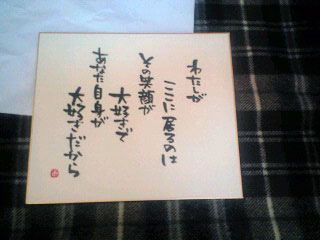 わたしが
ここに居るのは
その笑顔が
大好きで
あなた自身が
大好きだから